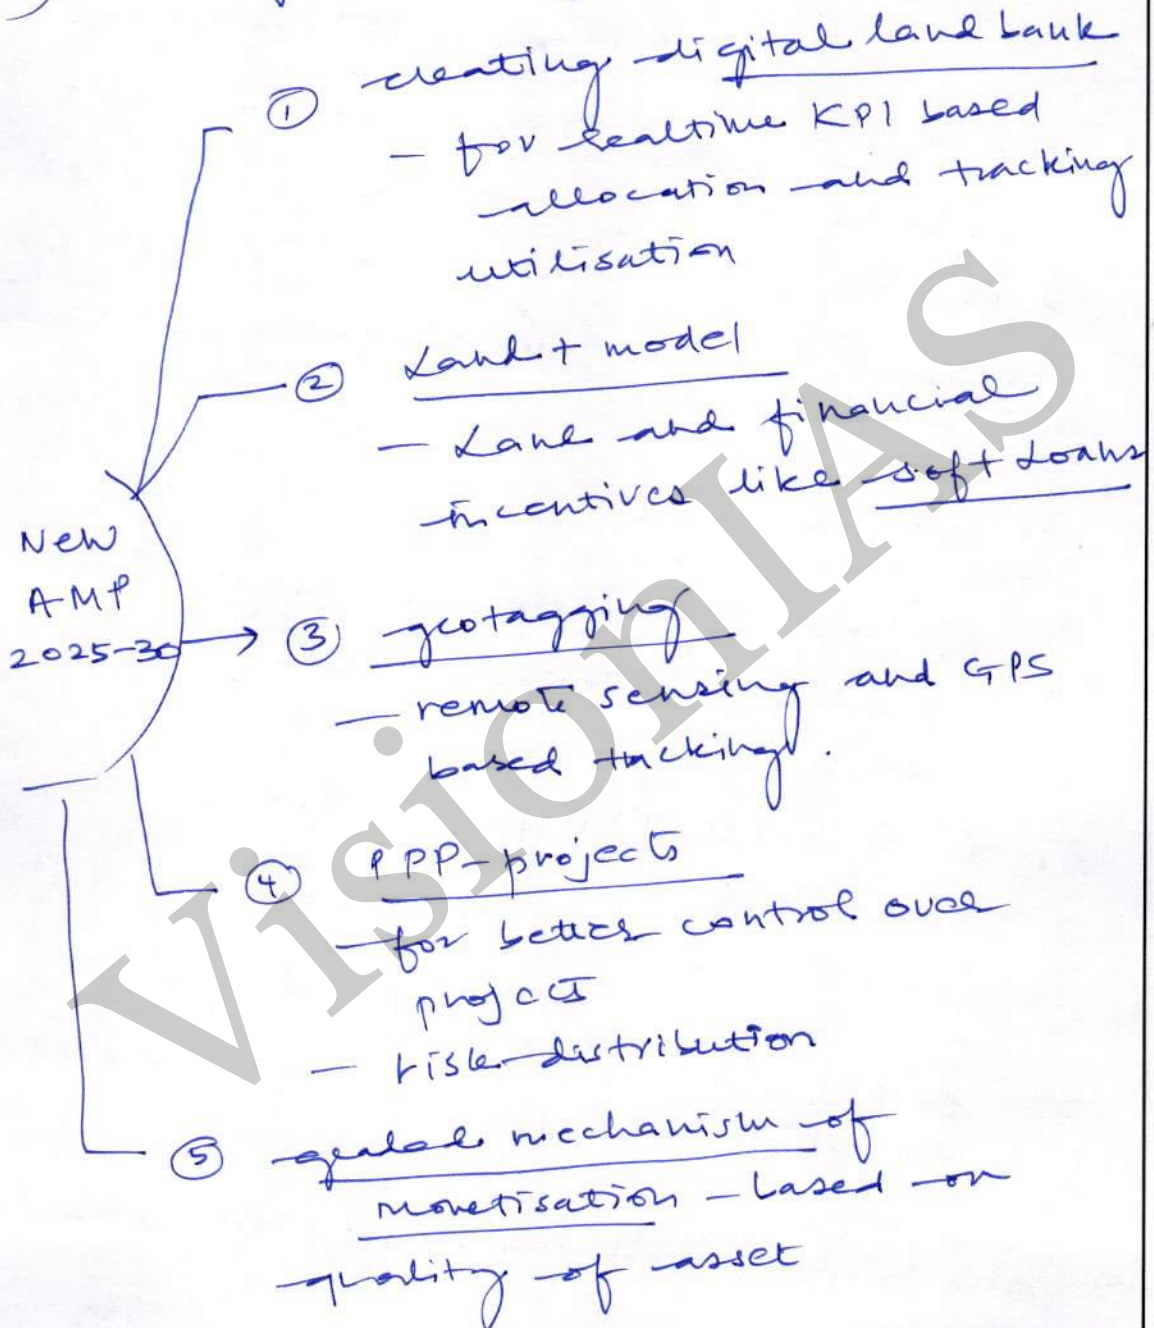 ① creating digital land bank
- for realtime KPI based
allocation and tracking
utilisation
② Land + model
- Land and financial
incentives like soft Loans
New
AMP
2025-30
③ geotagging
- remote sensing and GPS
based tracking.
④ PPP-projects
- for better control over
projects
- risk distribution
⑤ graded mechanism of
monetisation - based on
quality of asset
VisionIAS